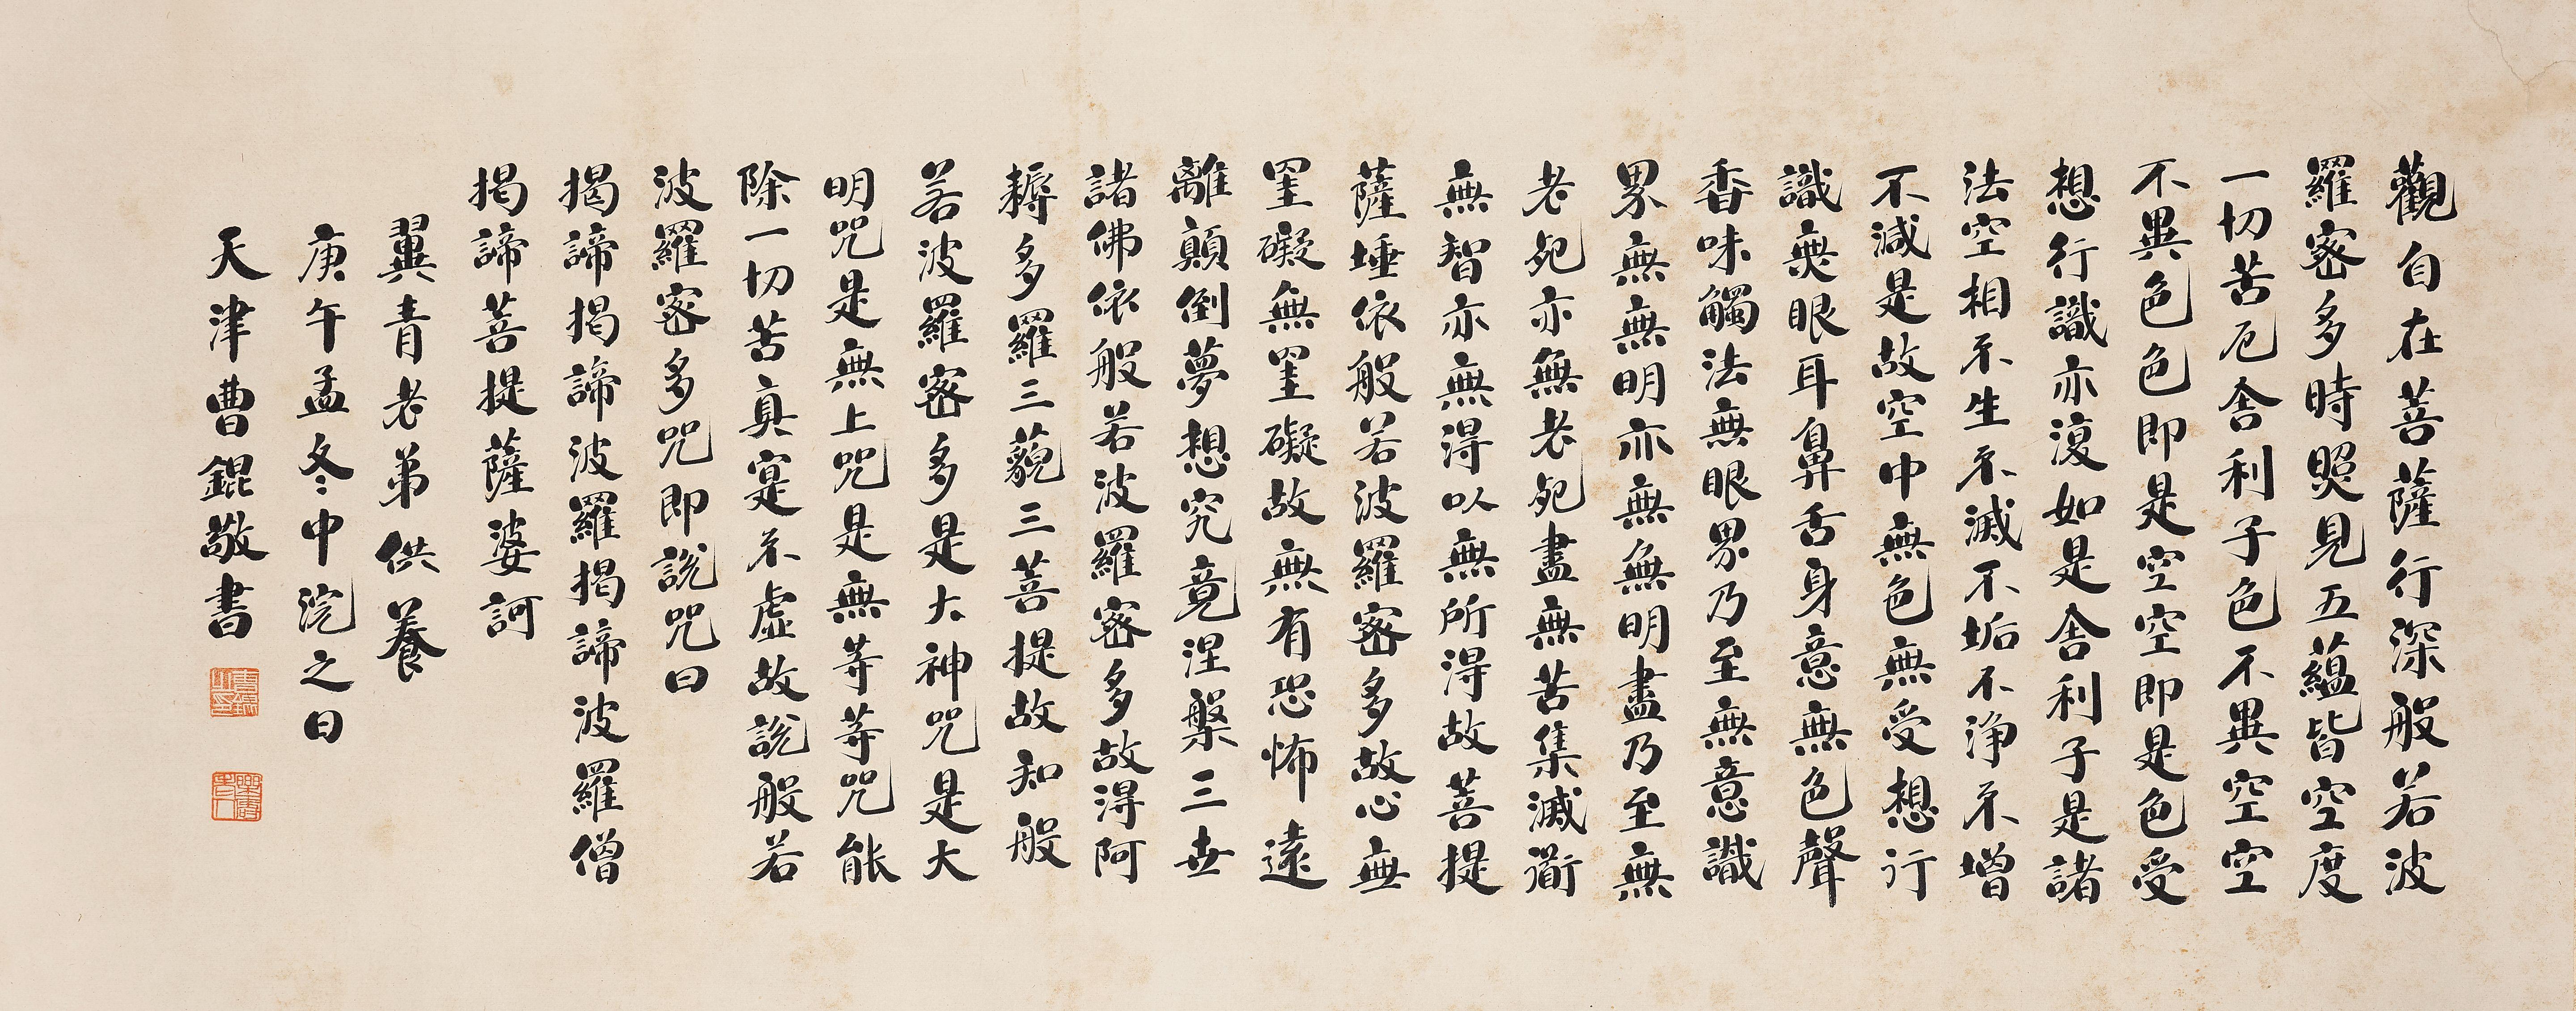 觀自在菩薩行深般若波
羅密多時照見五蘊皆空度
一切苦厄舍利子色不異空空
不異色色即是空空即是色受
想行識亦復如是舍利子是諸
法空相不生不滅不垢不淨不增
不減是故空中無色無受想行
識無眼耳鼻舌身意無色聲
香味觸法無眼界乃至無意識
界無無明亦無無明盡乃至無
老死亦無老死盡無苦集滅衜
無智亦無得以無所得故菩提
薩埵依般若波羅密多故心無
罣礙無罣礙故無有恐怖遠
離顛倒夢想究竟涅槃三世
諸佛依般若波羅密多故得阿
耨多羅三藐三菩提故知般
若波羅密多是大神咒是大
明咒是無上咒是無等等咒能
除一切苦真寔不虛故說般若
波羅密多咒即說咒曰
揭諦揭諦波羅揭諦波羅僧
揭諦菩提薩婆訶
翼青老弟供養
庚午孟冬中浣之日
天津曹錕敬書
樂壽老人